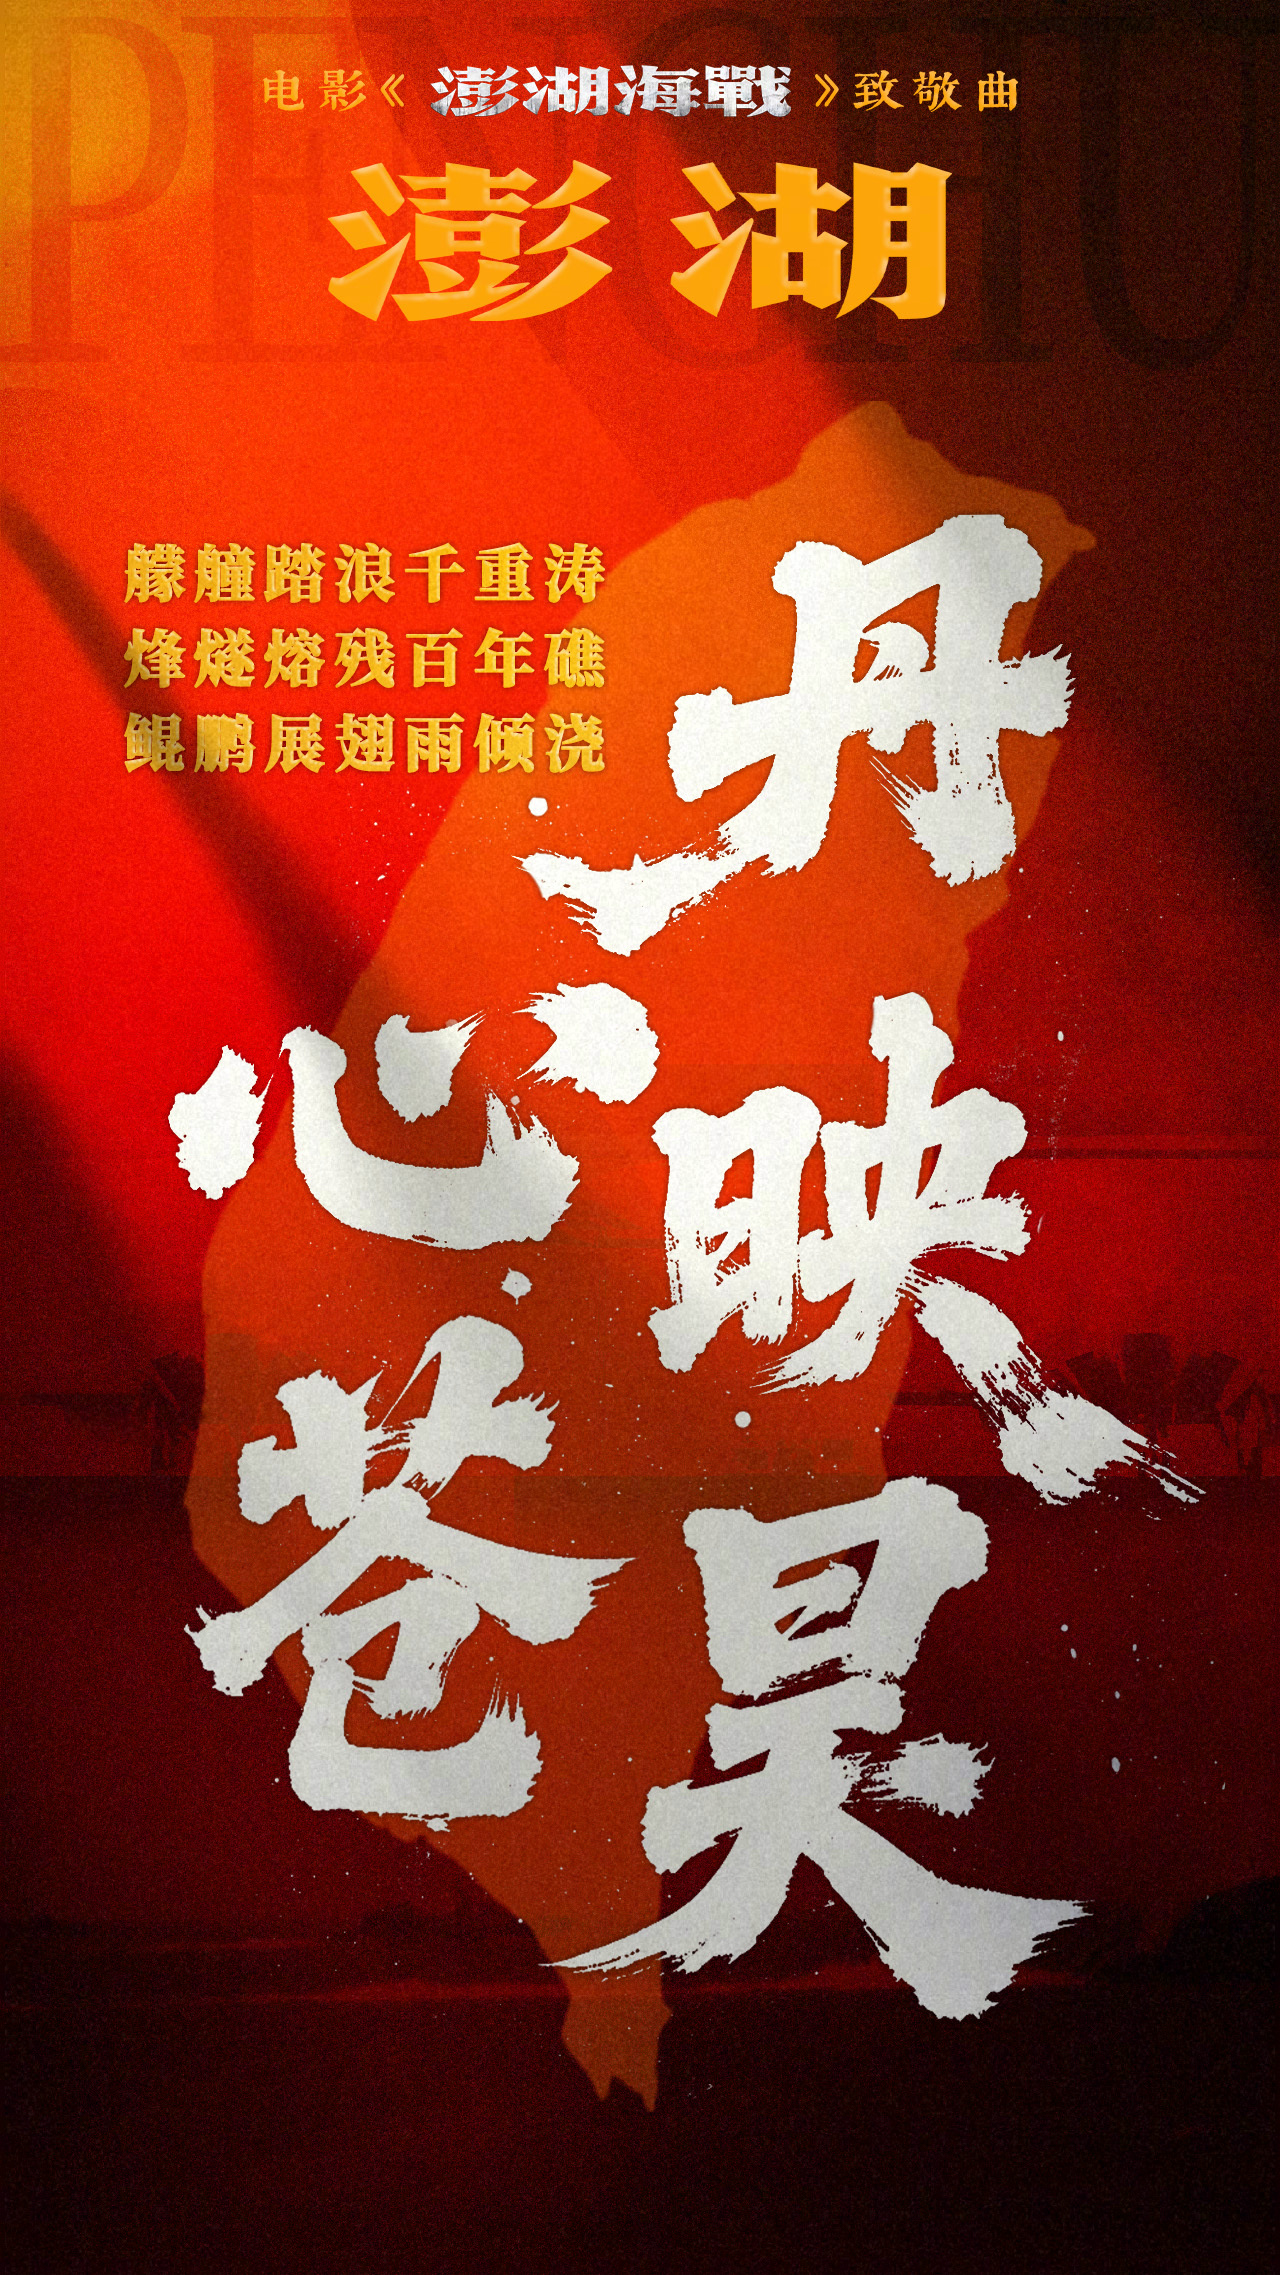 PENGHU
电影《澎湖海戰》致敬曲
澎湖
艨艟踏浪千重涛
烽燧熔残百年礁
鲲鹏展翅雨倾浇
丹心映苍昊